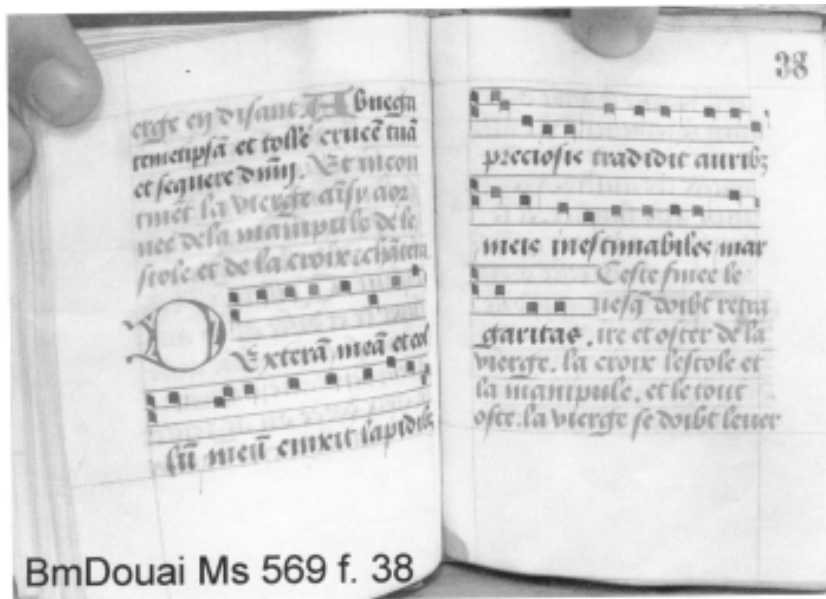 erge en disant Abnega
temetipsā et tolle crucē tuā
et sequere dnm̄. Et incon
tinēt la vierge aīsy aor
nee de la manipule de le
stole et de la croix chātera
Dexterā meā et col
lū meū cinxit lapidibꝫ
38
preciosis tradidit auribꝫ
meis inestimabiles mar
Ceste finee le
uesqʒ doibt retra
garitas. ire et oster de la
vierge. la croix lestole et
la manipule. et le tout
oste. la vierge se doibt lever
BmDouai Ms 569 f. 38